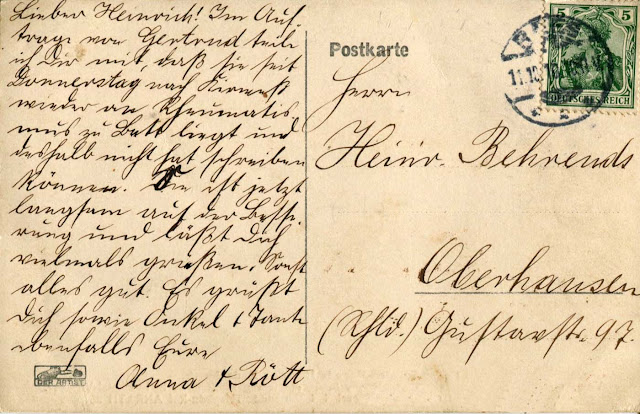 Lieber Heinrich! Im Auf-
trage von Gertrud teile
ich Dir mit, daß sie seit
Donnerstag nach Kirmeß
wieder an Rheumatis-
mus zu Bett liegt und
deshalb nicht hat schreiben
können. Sie ist jetzt
langsam auf der Besse-
rung und läßt Dich
vielmals grüßen. Sonst
alles gut. Es grüßt
Dich sowie Onkel & Tante
ebenfalls Eure
Anna & Rött
Postkarte
5 5
DEUTSCHES REICH
11.10.
Herrn
Heinr. Behrends
Oberhausen
(Rhld.) Gustavstr. 97.